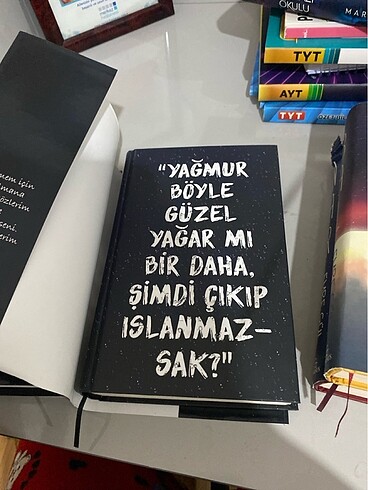 OKULU
MAR
TYT
AYT
TYT
nem için
mana
özlerim
e
seni.
erim
"YAĞMUR
BÖYLE
GÜZEL
YAĞAR MI
BİR DAHA,
ŞİMDİ ÇIKIP
ISLANMAZ-
SAK?"